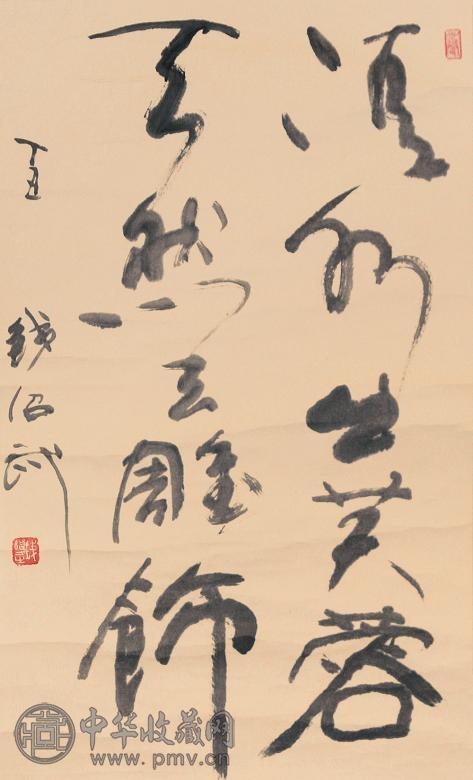 清水出芙蓉
天然去雕飾
丁丑 錢紹武
中华收藏网
www.pmv.cn